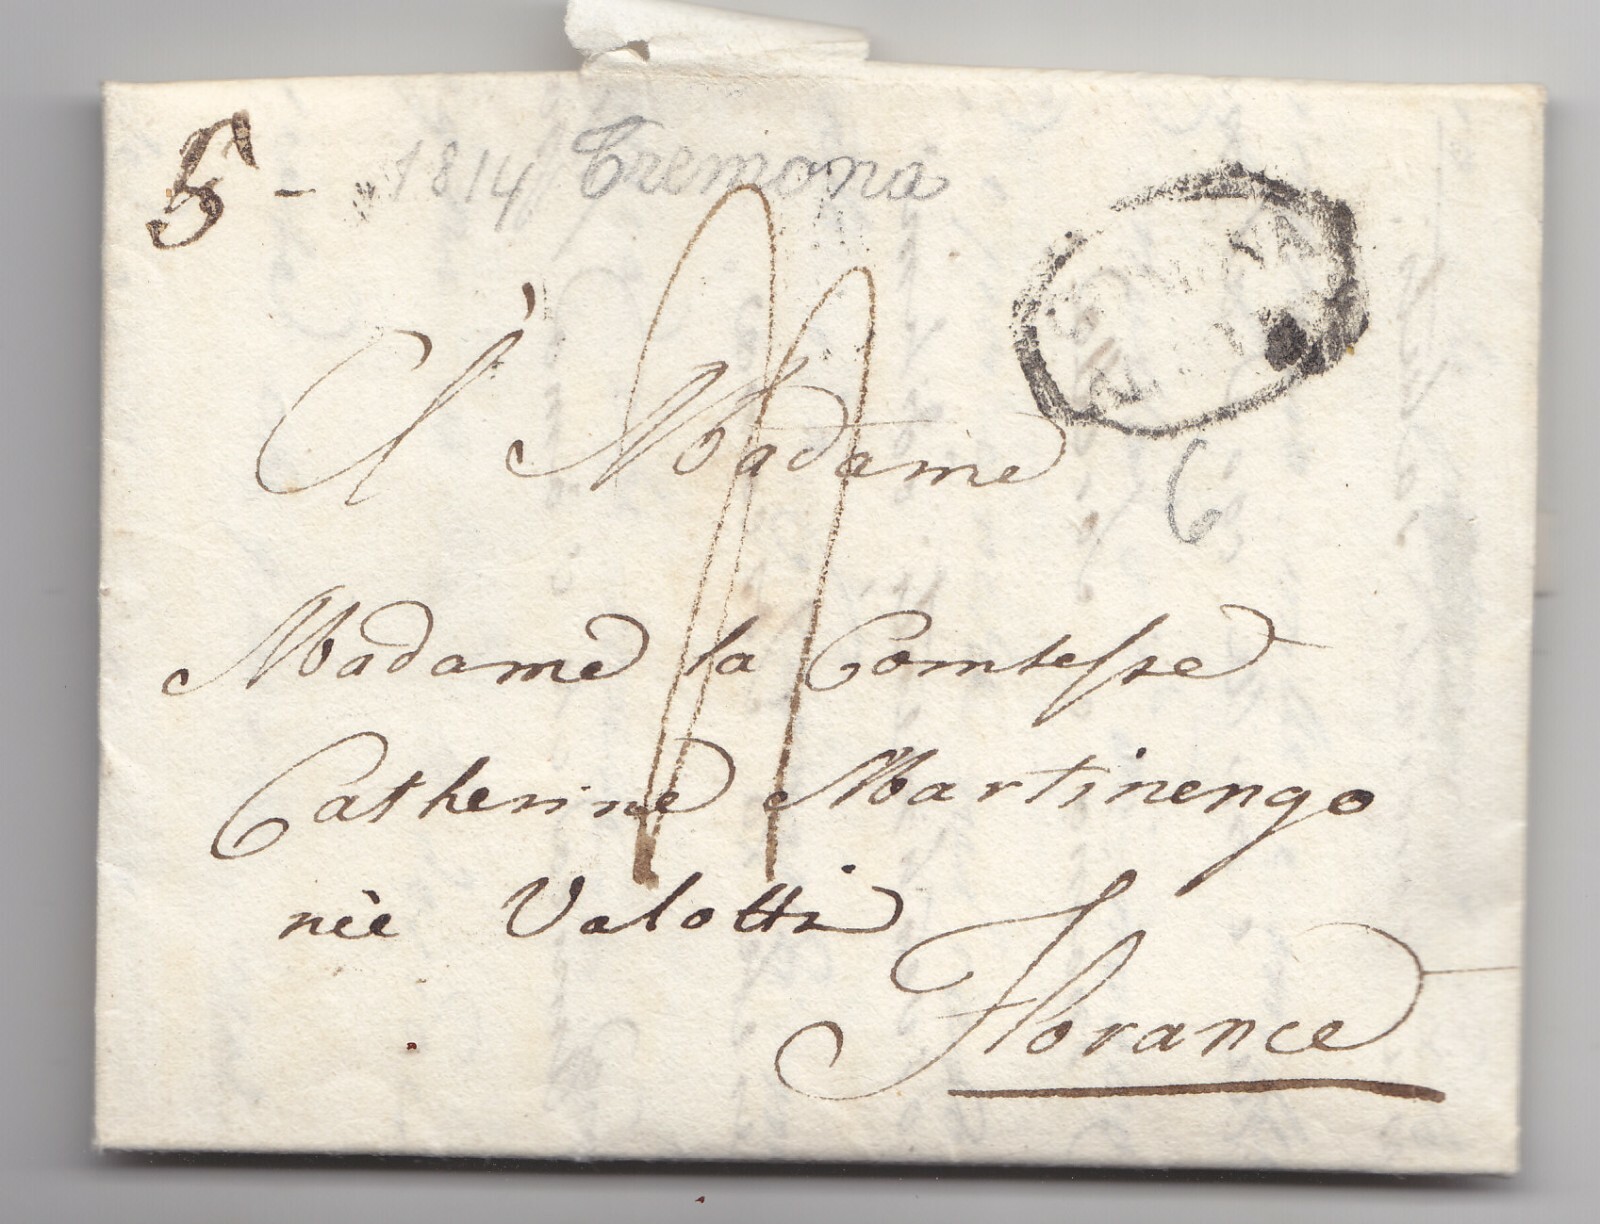 5 - 1814 Cremona
A' Madame
6
Madame la Comtesse
Catherine Martinengo
nèe Valotti
Florance